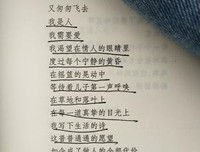 又匆匆飞去
我是人
我需要爱
我渴望在情人的眼睛里
度过每个宁静的黄昏
在摇篮的晃动中
等待着儿子第一声呼唤
在草地和落叶上
在每一道真挚的目光上
我写下生活的诗
这普普通通的愿望
如今成了做人的全部代价